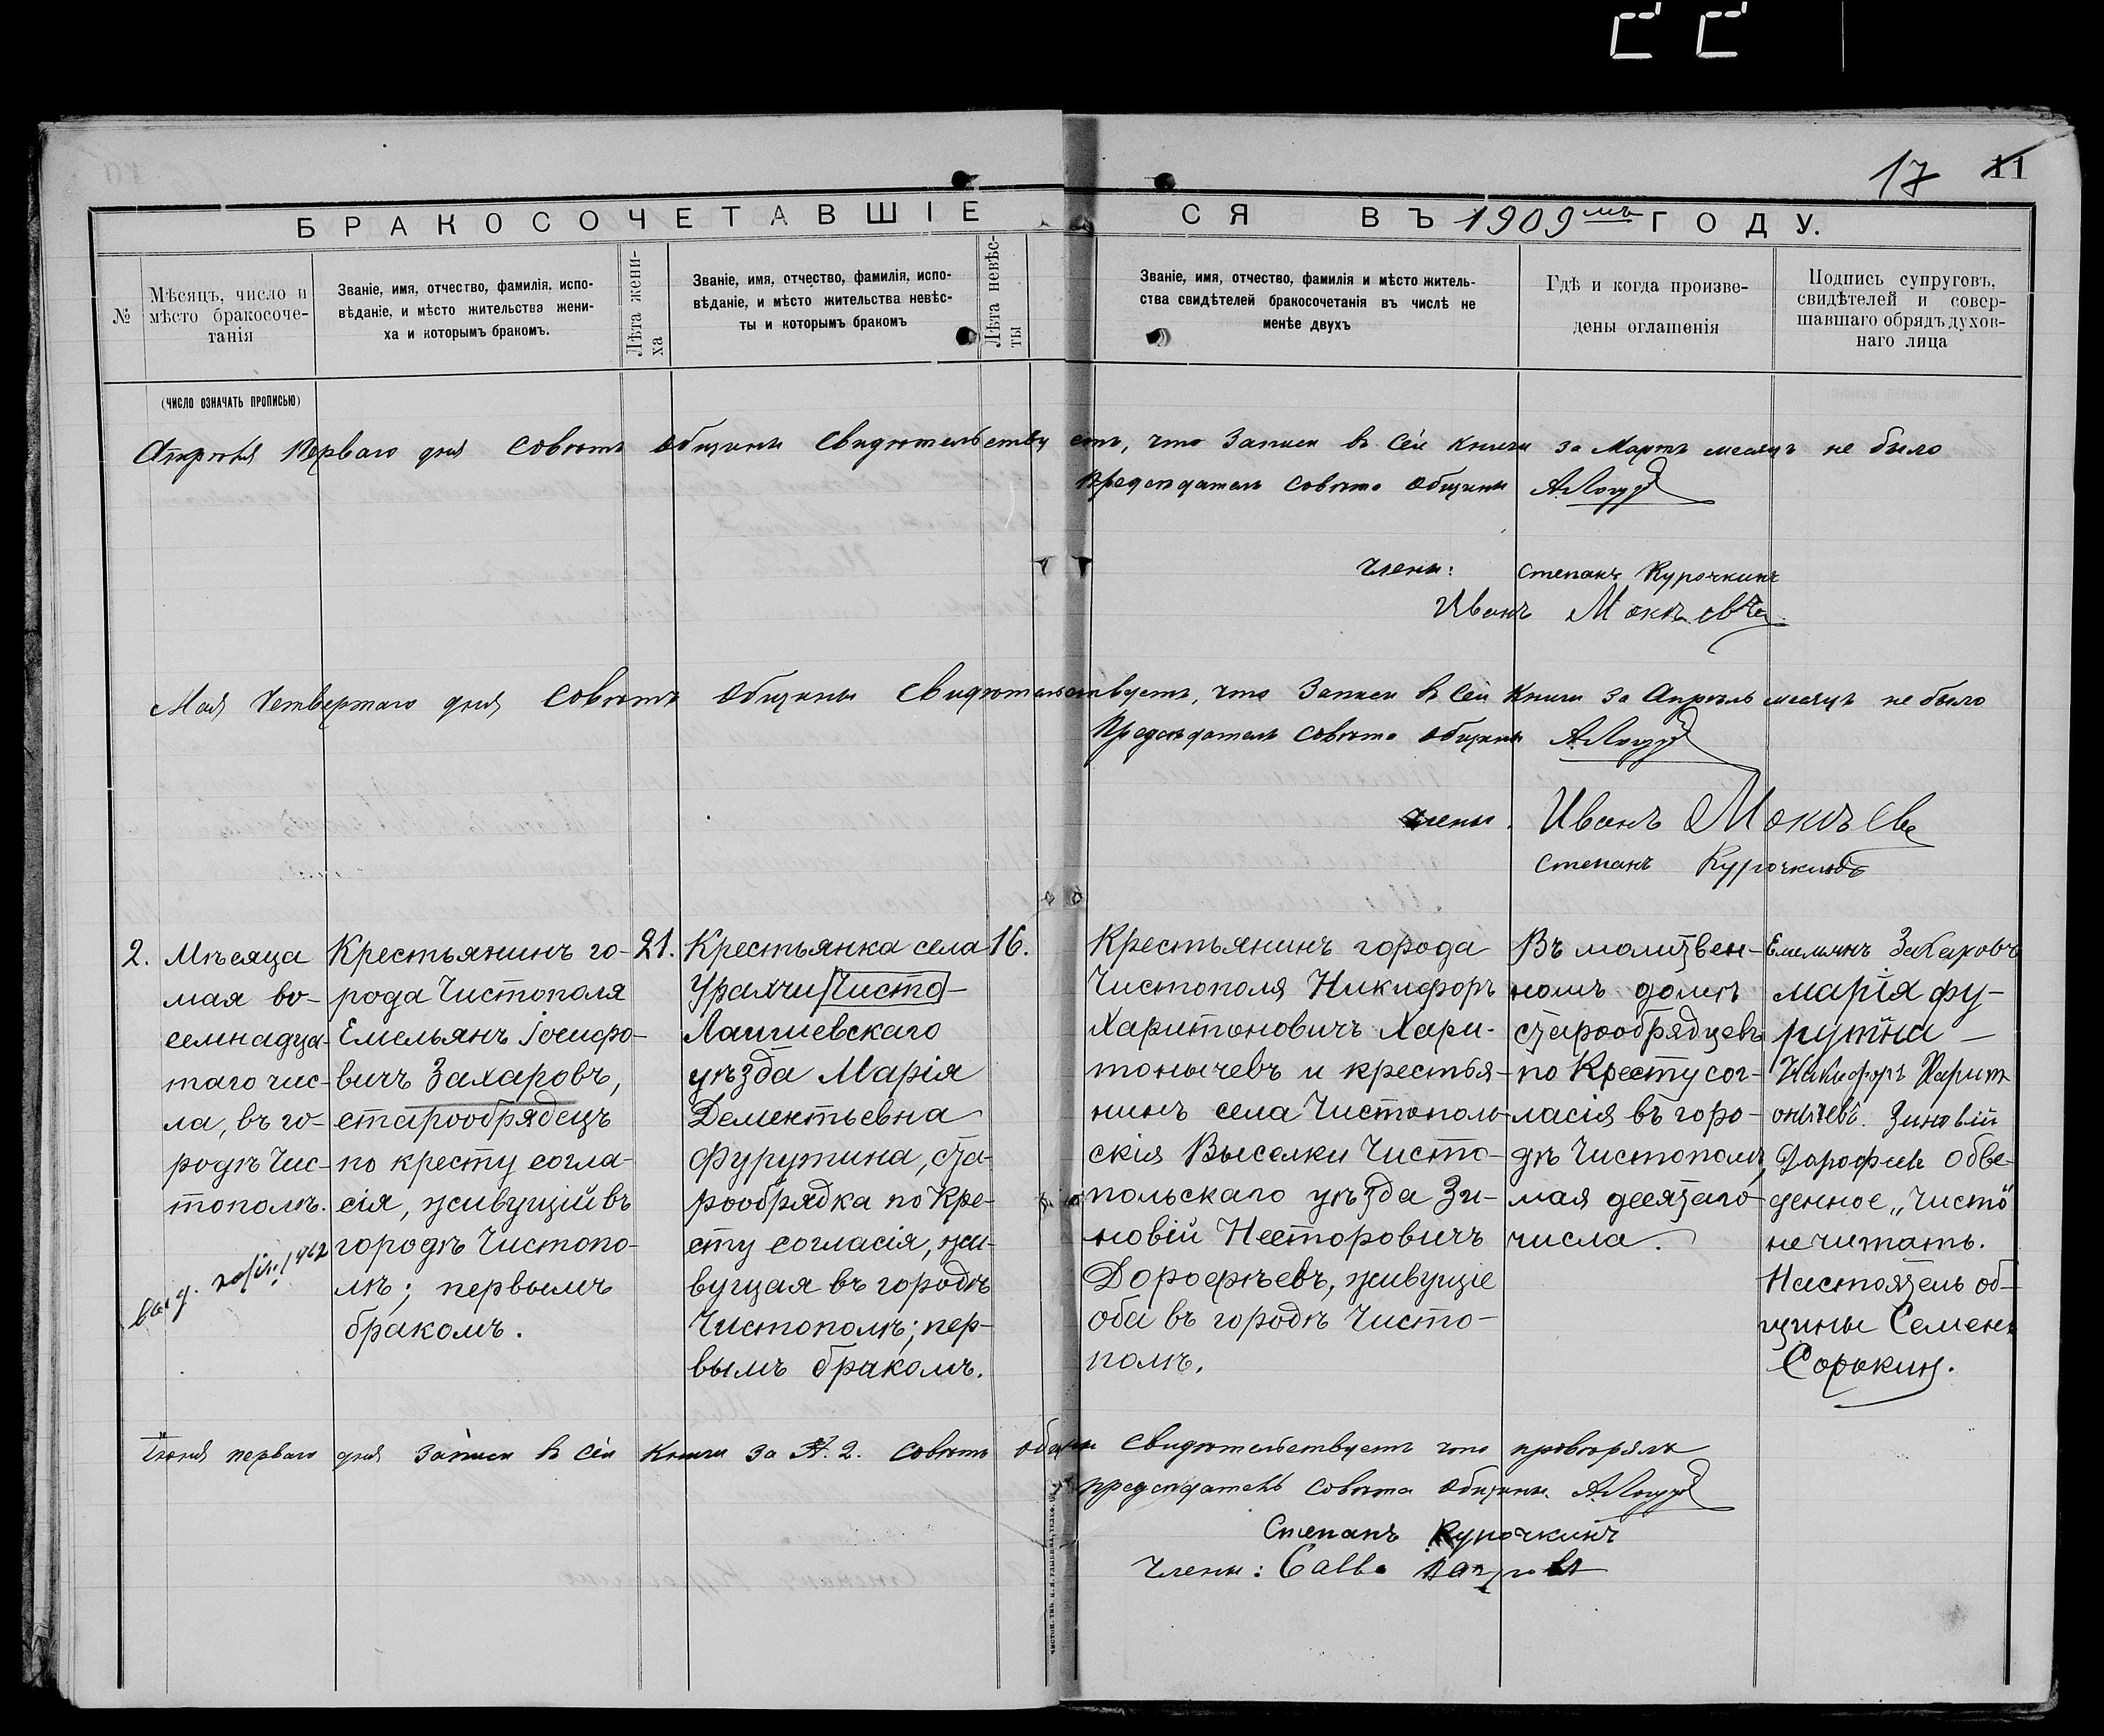 17 11
БРАКОСОЧЕТАВШІЕСЯ ВЪ 1909мъ ГОДУ.
№
Мѣсяцъ, число и
мѣсто бракосоче-
танія
Званіе, имя, отчество, фамилія, испо-
вѣданіе, и мѣсто жительства жени-
ха и которымъ бракомъ.
Лѣта жени-
ха
Званіе, имя, отчество, фамилія, испо-
вѣданіе, и мѣсто жительства невѣс-
ты и которымъ бракомъ
Лѣта невѣс-
ты
Званіе, имя, отчество, фамилія и мѣсто житель-
ства свидѣтелей бракосочетанія въ числѣ не
менѣе двухъ
Гдѣ и когда произве-
дены оглашенія
Подпись супруговъ,
свидѣтелей и совер-
шавшаго обрядъ духов-
наго лица
(ЧИСЛО ОЗНАЧАТЬ ПРОПИСЬЮ)
Апрѣля Перваго дня Совѣтъ Общины Свидѣтельствуетъ, что Записи въ Сей книги за Мартъ месяцъ не было
Председатель Совѣта Общины
Члены: Степанъ Курочкинъ
Иванъ Мокѣевъ
Мая Четвертаго дня Совѣтъ Общины Свидѣтельствуетъ, что Записи въ Сей Книги за Апрѣль месяцъ не было
Председатель Совѣта Общины
Члены. Иванъ Мокѣевъ
Степанъ Курочкинъ
2.
Мѣсяца
мая во-
семнадца-
таго чис-
ла, въ го-
родѣ Чис-
тополѣ.
Крестьянинъ го-
рода Чистополя
Емельянъ Іосифо-
вичъ Захаровъ,
старообрядецъ
по кресту согла-
сія, живущій въ
городѣ Чистопо-
лѣ; первымъ
бракомъ.
21.
Крестьянка села
Урахчи Чисто-
Лаишевскаго
уѣзда Марія
Дементьевна
Фурутина, ста-
рообрядка по Кре-
сту согласія, жи-
вущая въ городѣ
Чистополѣ; пер-
вымъ бракомъ.
16.
Крестьянинъ города
Чистополя Никифоръ
Харитоновичъ Хари-
тонычевъ и крестья-
нинъ села Чистополь-
скія Выселки Чисто-
польскаго уѣзда Зи-
новій Несторовичъ
Дорофѣевъ, живущіе
оба въ городѣ Чисто-
полѣ.
Въ молитвен-
номъ домѣ
старообрядцевъ
по Кресту сог-
ласія въ горо-
дѣ Чистополѣ,
мая десятаго
числа.
Емельянъ Захаровъ
марія фу-
рутина
Никифоръ Харит
онычевъ. Зиновій
Дорофѣевъ Обве-
денное „Чисто"
не читать.
Настоятель об-
щины Семенъ
Сорокинъ.
Іюня перваго дня Записи въ Сей Книги за №. 2. Совѣтъ общины Свидѣтельствуетъ что провѣряли
председатель Совѣта Общины.
Степанъ Курочкинъ
Члены: